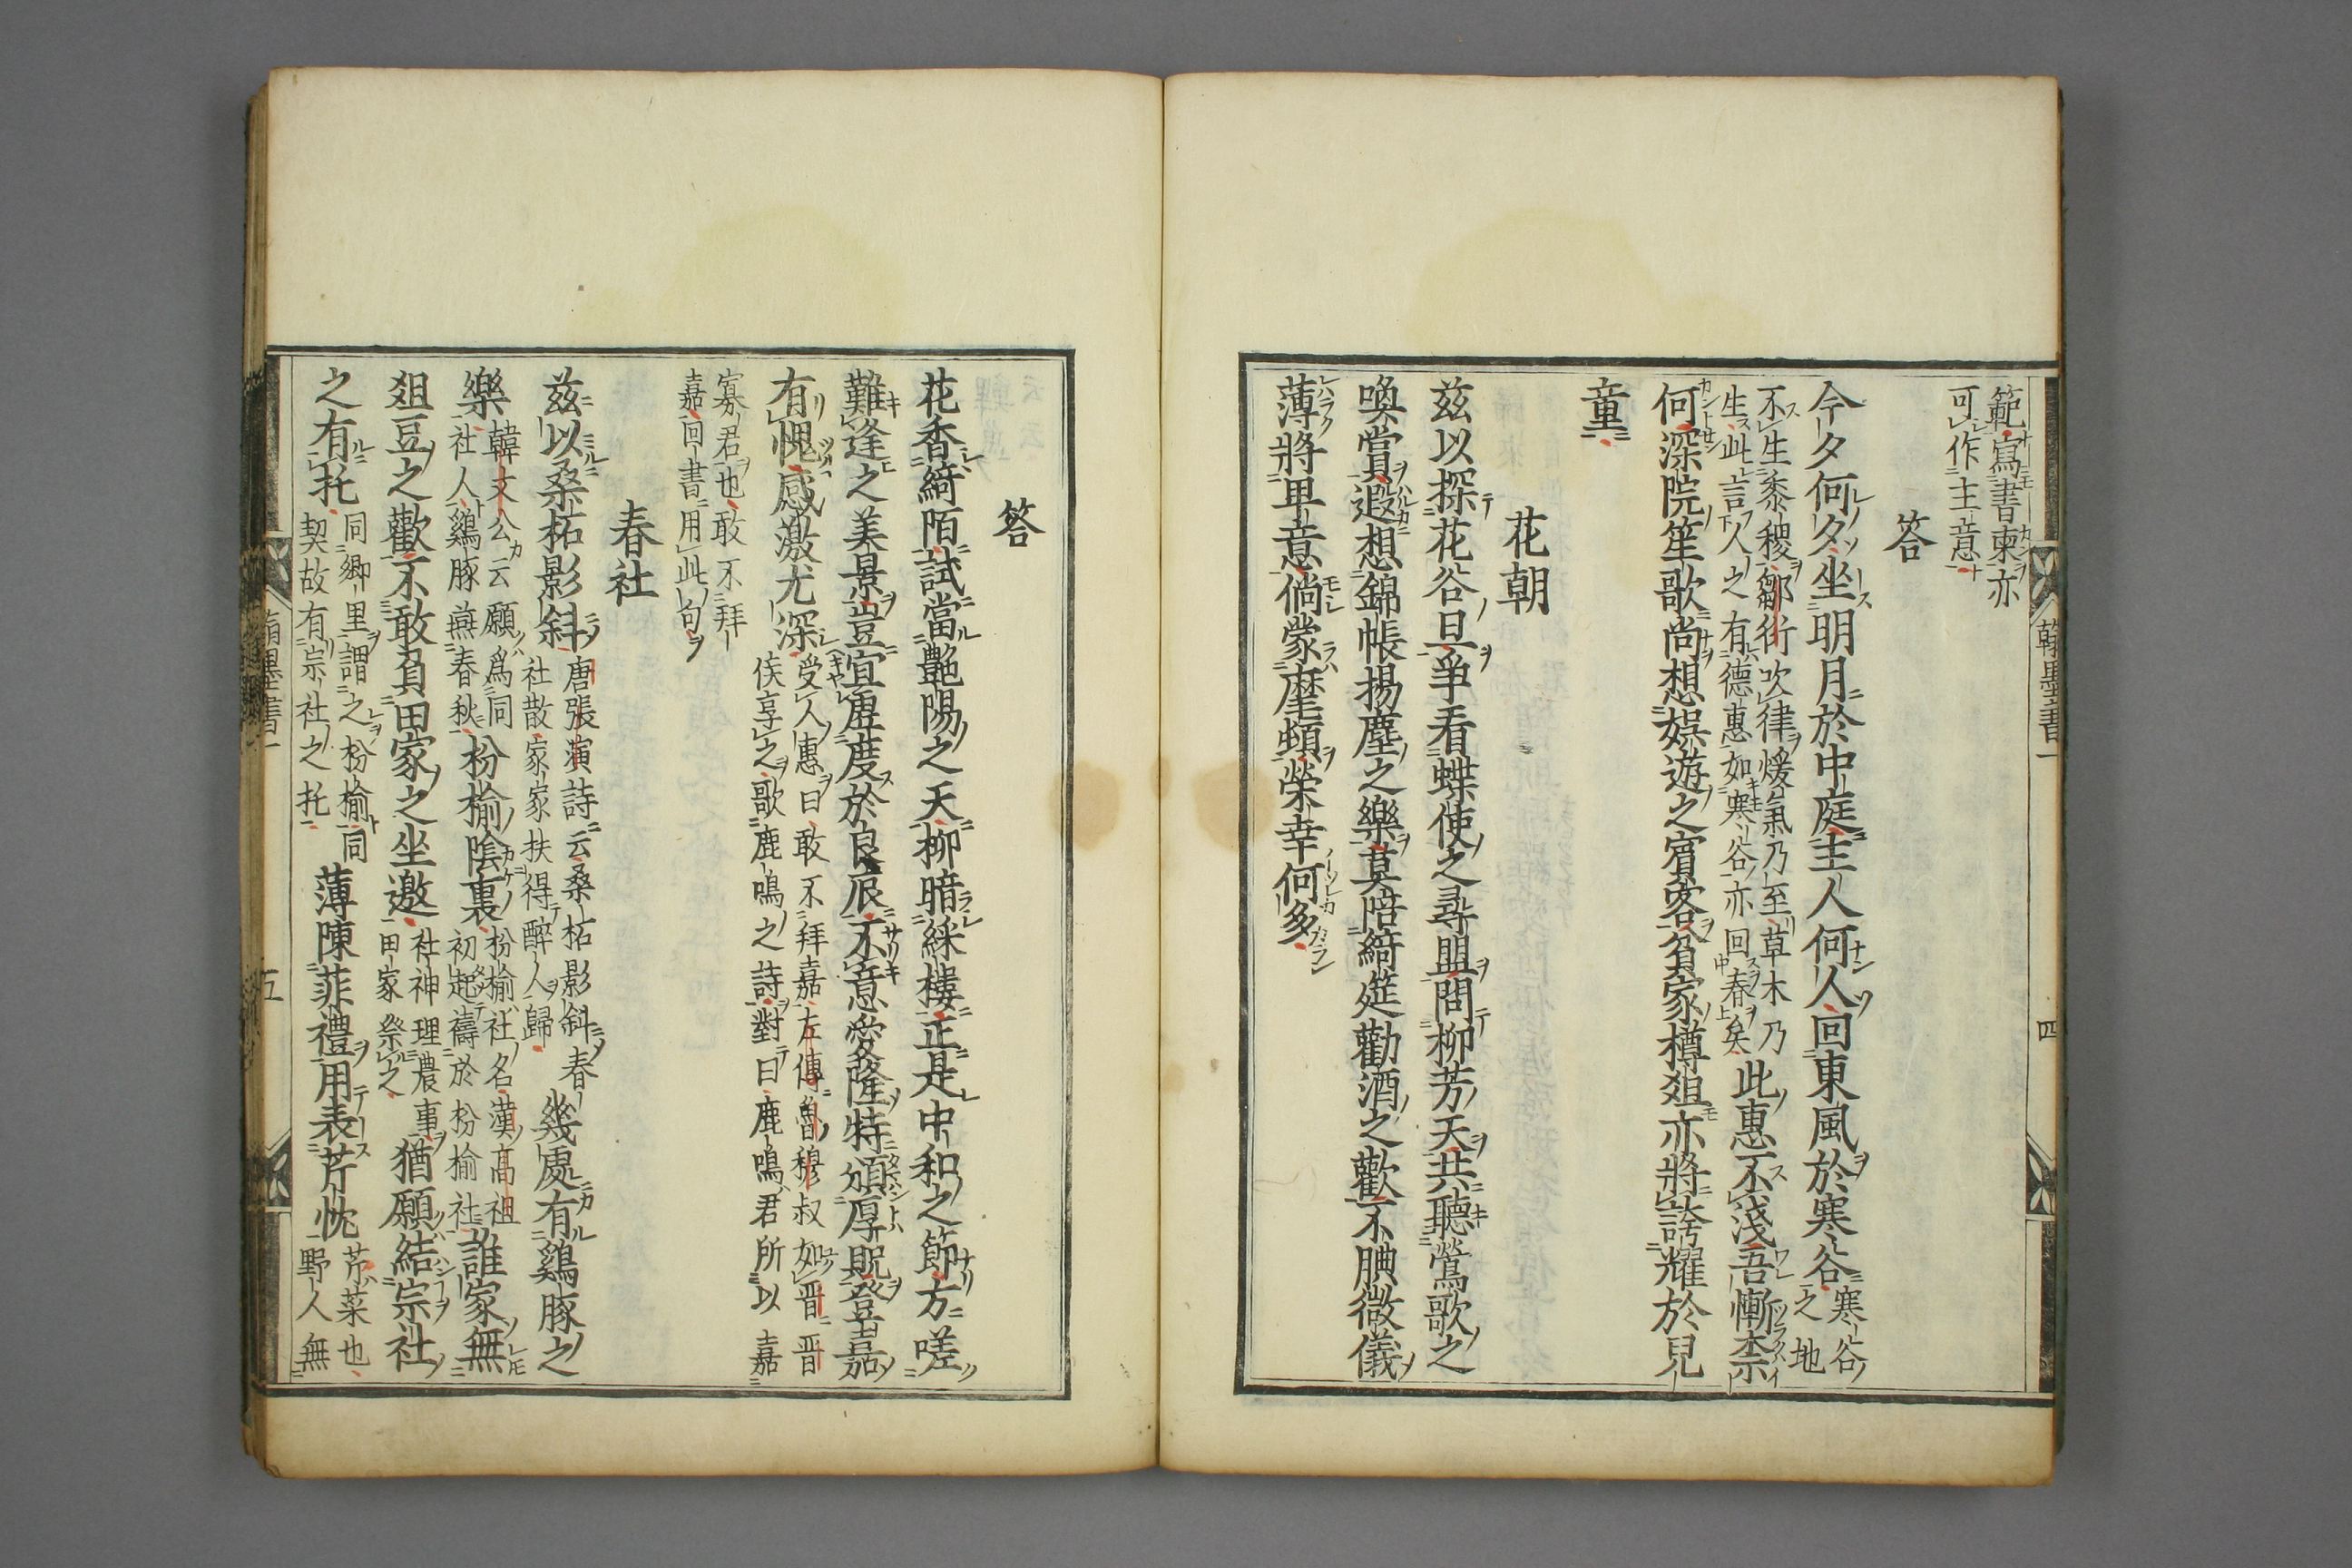 範寫書柬亦
可作主意
答
今夕何夕坐明月於中庭主人何人回東風於寒谷寒谷之地
不生黍稷鄒衍吹律煖氣乃至草木乃
生此言人之有德惠如寒谷亦回春矣此惠不淺吾慚柰
何深院笙歌尚想娯遊之賓客貧家樽俎亦將誇耀於兒
童
花朝
茲以探花谷旦爭看蝶使之尋盟問柳芳天共聽鶯歌之
喚賞遐想錦帳揚塵之樂莫陪綺筵勸酒之歡不腆微儀
薄將卑意倘蒙麾頓榮幸何多
翰墨書一
四
答
花香綺陌試當艶陽之天柳暗綵樓正是中和之節方嗟
難逢之美景豈宜虛度於良辰不意愛隆特頒厚貺登嘉
有愧感激尤深受人惠曰敢不拜嘉左傳魯穆叔如晉晉
侯享之歌鹿鳴之詩對曰鹿鳴君所以嘉
寡君也敢不拜
嘉回書用此句
春社
茲以桑柘影斜唐張演詩云桑柘影斜春
社散家家扶得醉人歸幾處有鷄豚之
樂韓文公云願爲同
社人鷄豚燕春秋枌榆陰裏枌榆社名漢高祖
初起禱於枌榆社誰家無
俎豆之歡不敢負田家之坐邀社神理農事
田家祭之猶願結宗社
之有托同鄉里謂之枌榆同
契故有宗社之托薄陳菲禮用表芹忱芹菜也
野人無
五